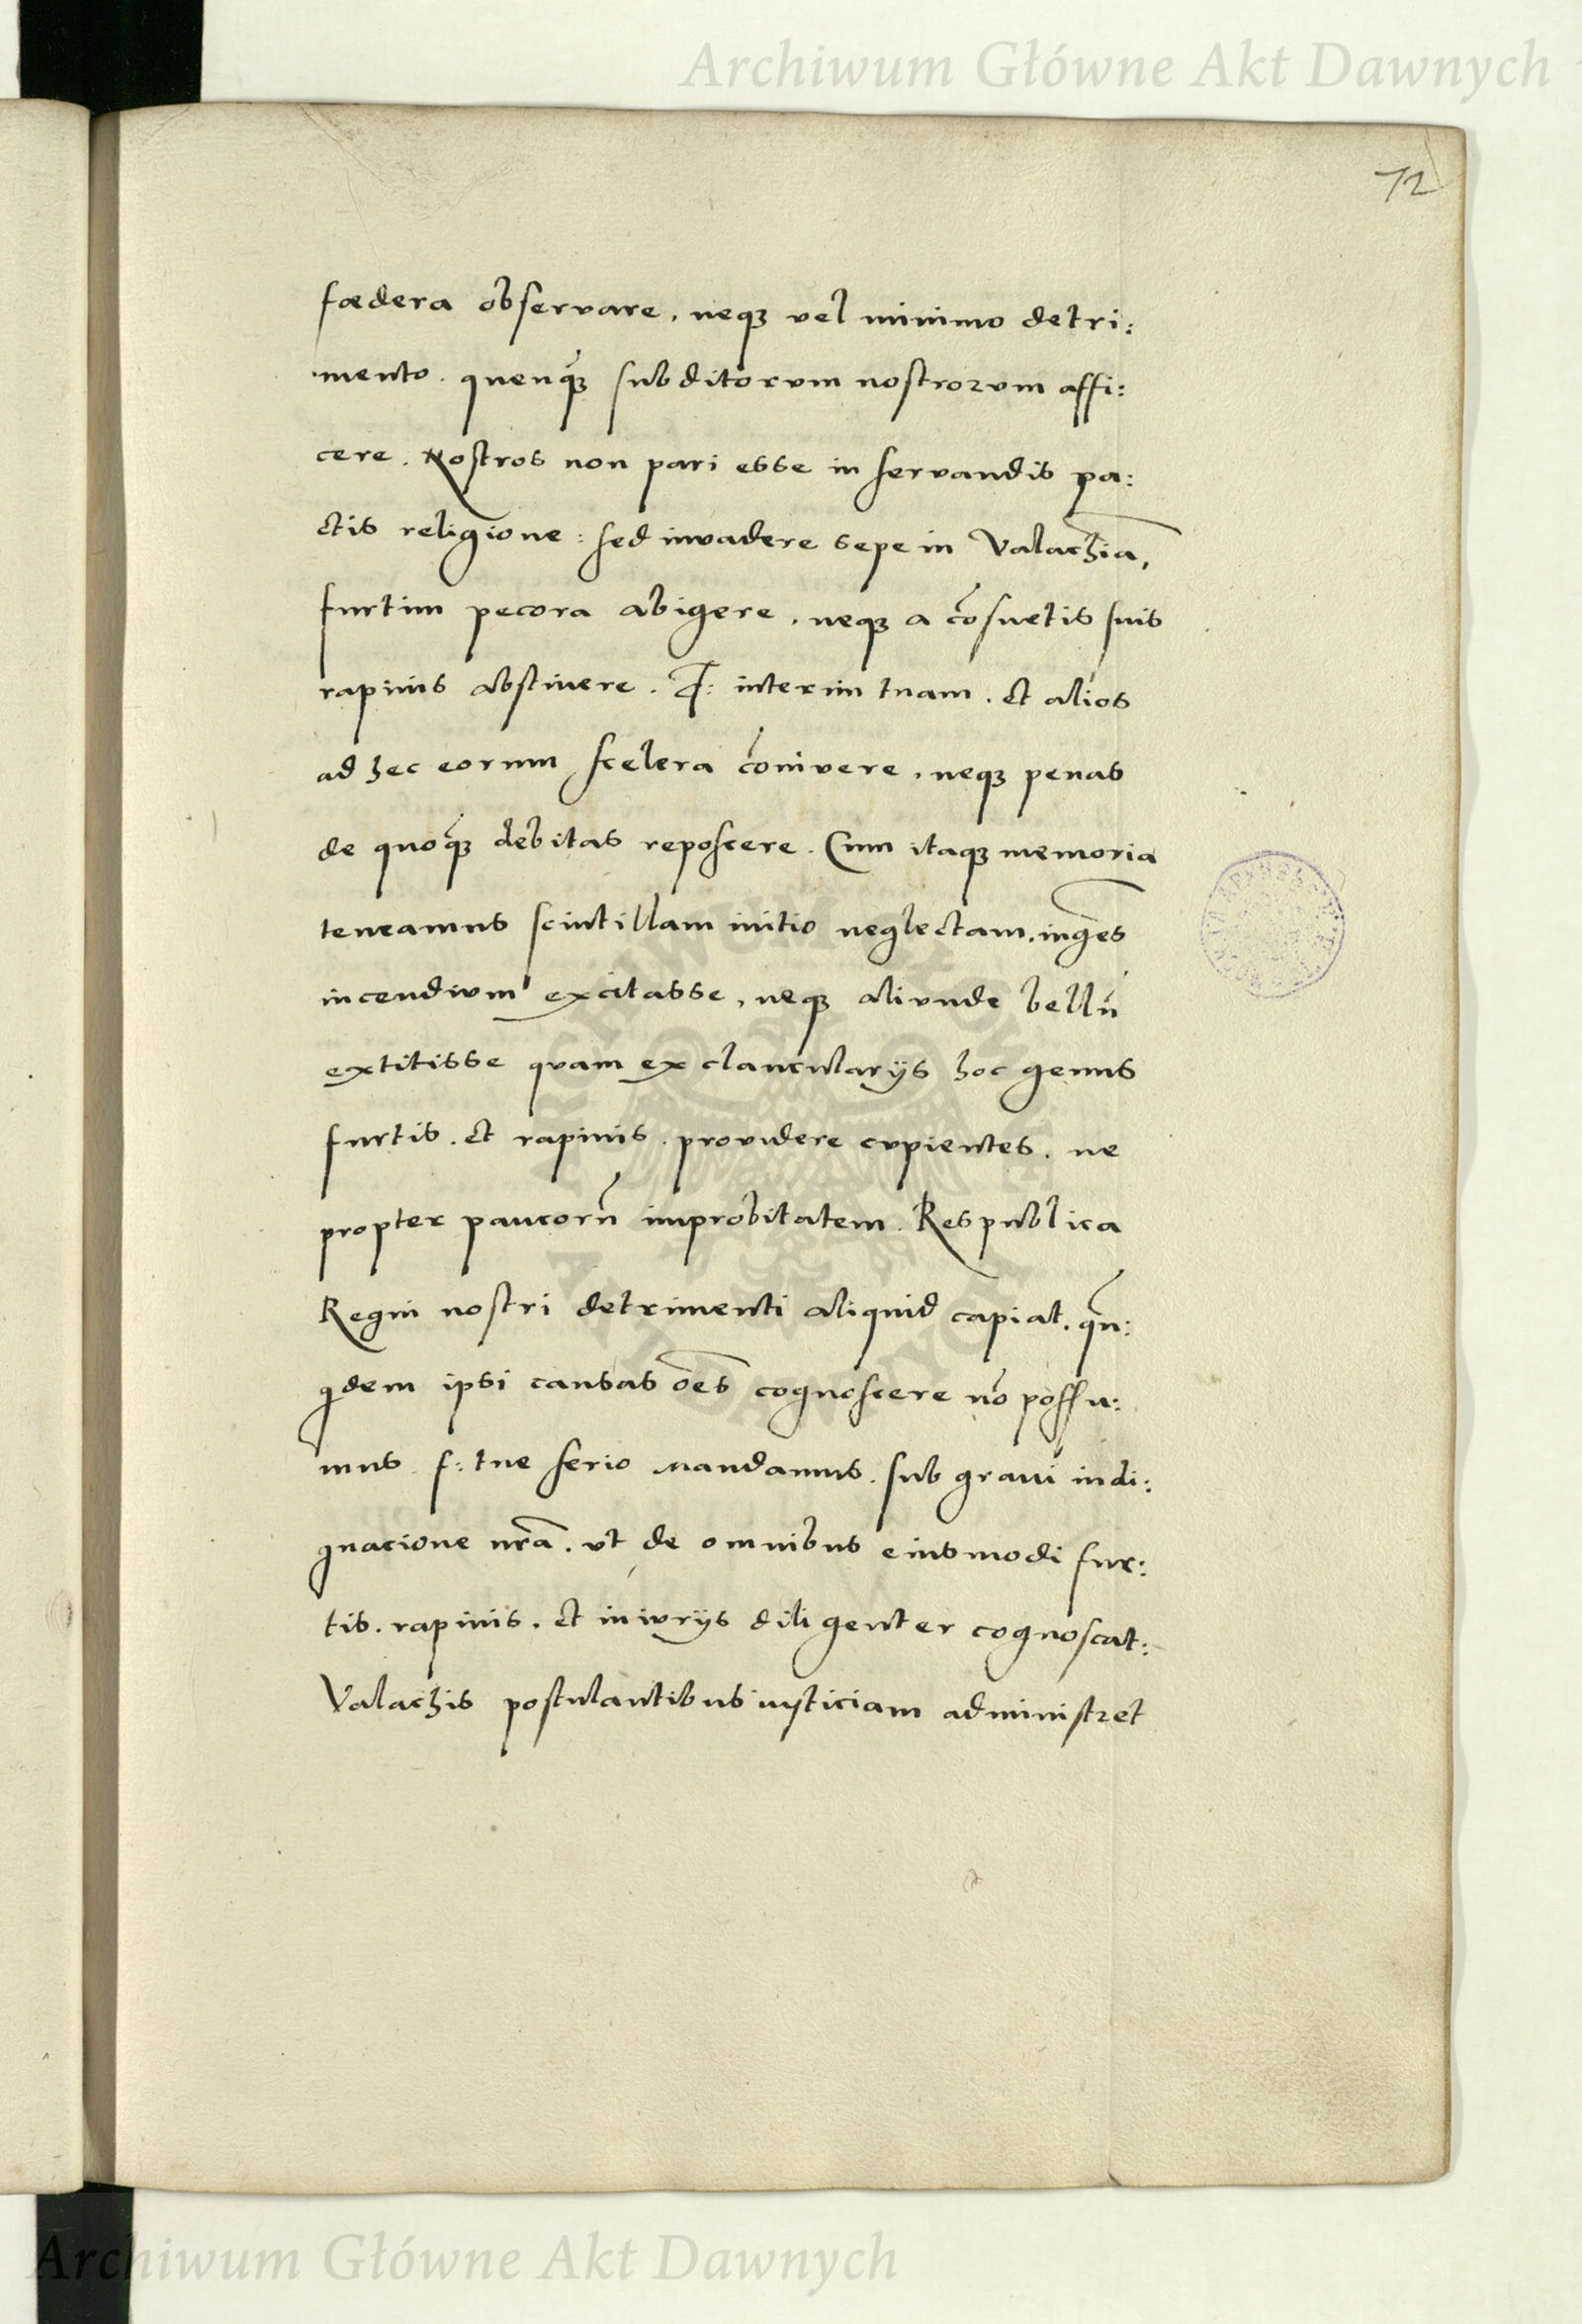 Archiwum Główne Akt Dawnych
72
fœdera observare, neqꝫ vel minimo detri:
mento. quenq́ꝫ subditorum nostrorum affi:
cere. Nostros non pari esse in servandis pa:
ctis religione: sed invadere sepe in Valachia,
furtim pecora abigere, neqꝫ a cōsuetis suis
rapinis abstinere. F: interim tuam. et alios
ad hec eorum scelera cōnivere, neqꝫ penas
de quoq́ꝫ debitas reposcere. Cum itaqꝫ memoria
teneamus scintillam initio neglectam, ingēs
incendium excitasse, neqꝫ aliunde bellū
extitisse quam ex clancularijs hoc genus
furtis. et rapinis. providere cupientes. ne
propter paucorū improbitatem. Respublica
Regni nostri detrimenti aliquid capiat. qn̄:
qdem ipsi causas oēs cognoscere nō possu:
mus. f: tue serio mandamus. sub gravi indi:
gnacione nrā. ut de omnibus eiusmodi fur:
tis. rapinis. et iniurijs diligenter cognoscat:
Valachis postulantibus iusticiam administret
ARCHIWUM GŁÓWNE
AKT DAWNYCH
Archiwum Główne Akt Dawnych